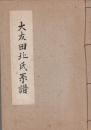 大友田北氏系譜